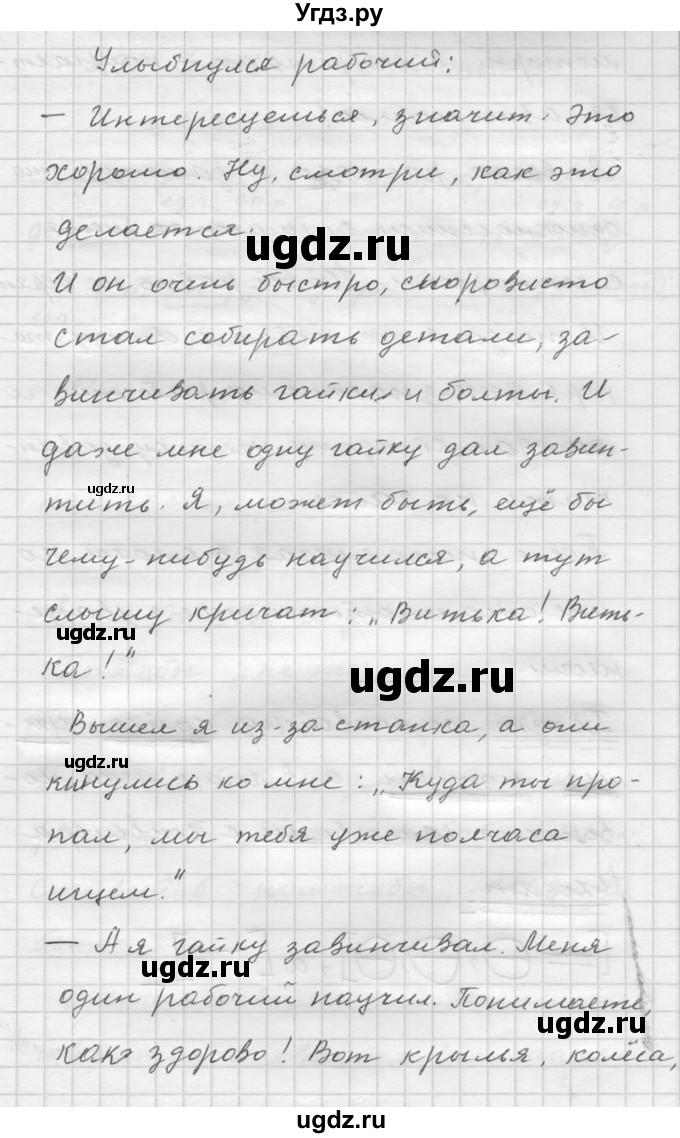 Угдз.ру
Улыбнулся рабочий:
— Интересуешься, значит. Это
хорошо. Ну, смотри, как это
делается.
ugdz.ru
И он очень быстро, сноровисто
стал собирать детали, за-
винчивать гайки и болты. И
даже мне одну гайку дал завин-
ugdz.ru
тить. Я, может быть, ещё бы
чему-нибудь научился, а тут
слышу кричат: „Витька! Вить-
ugdz.ru
ка!"
ugdz.ru
Вышел я из-за станка, а они
ugdz.ru
кинулись ко мне: „Куда ты про-
пал, мы тебя уже полчаса
ищем."
— А я гайку завинчивал. Меня
ugdz.ru
один рабочий научил. Понимаете,
ugdz.ru
как здорово! Вот крылья, колёса,
ugdz.ru